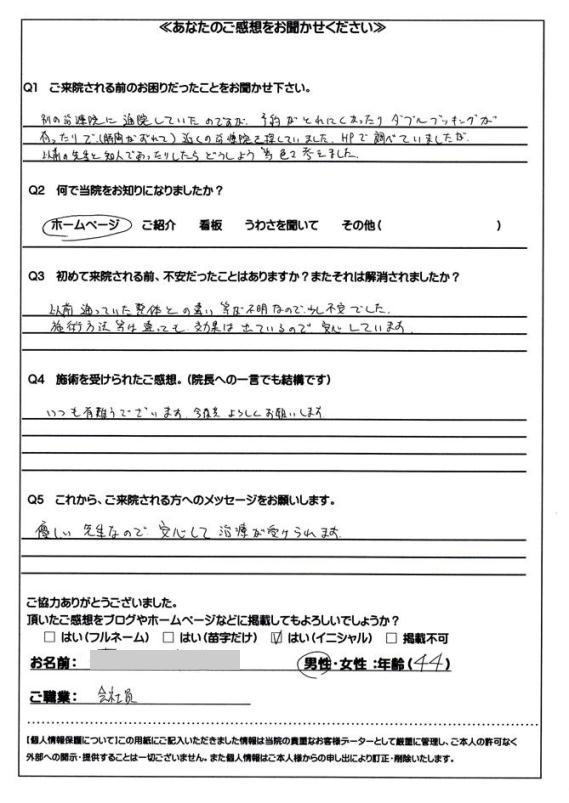 ≪あなたのご感想をお聞かせください≫
Q1 ご来院される前のお困りだったことをお聞かせ下さい。
別の治療院に通院していたのですが、予約がとれにくまったりダブルブッキングが
あったりで、(時間がおそくて)近くの治療院を探していました。HPで調べていましたが、
以前の先生と知人であったりしたらどうしよう等色々考えました。
Q2 何で当院をお知りになりましたか？
ホームページ ご紹介 看板 うわさを聞いて その他( )
Q3 初めて来院される前、不安だったことはありますか？またそれは解消されましたか？
以前通っていた整体との違い等が不明なので少し不安でした。
施術方法等は違っても、効果は出ているので安心しています。
Q4 施術を受けられたご感想。(院長への一言でも結構です)
いつも有難うございます。今後もよろしくお願いします。
Q5 これから、ご来院される方へのメッセージをお願いします。
優しい先生なので安心して治療が受けられます。
ご協力ありがとうございました。
頂いたご感想をブログやホームページなどに掲載してもよろしいでしょうか？
□ はい(フルネーム) □ はい(苗字だけ) ☑ はい(イニシャル) □ 掲載不可
お名前： 男性・女性：年齢(44)
ご職業： 会社員
【個人情報保護について】この用紙にご記入いただきました情報は当院の貴重なお客様データーとして厳重に管理し、ご本人の許可なく
外部への開示・提供することは一切ございません。また個人情報はご本人様からの申し出により訂正・削除いたします。